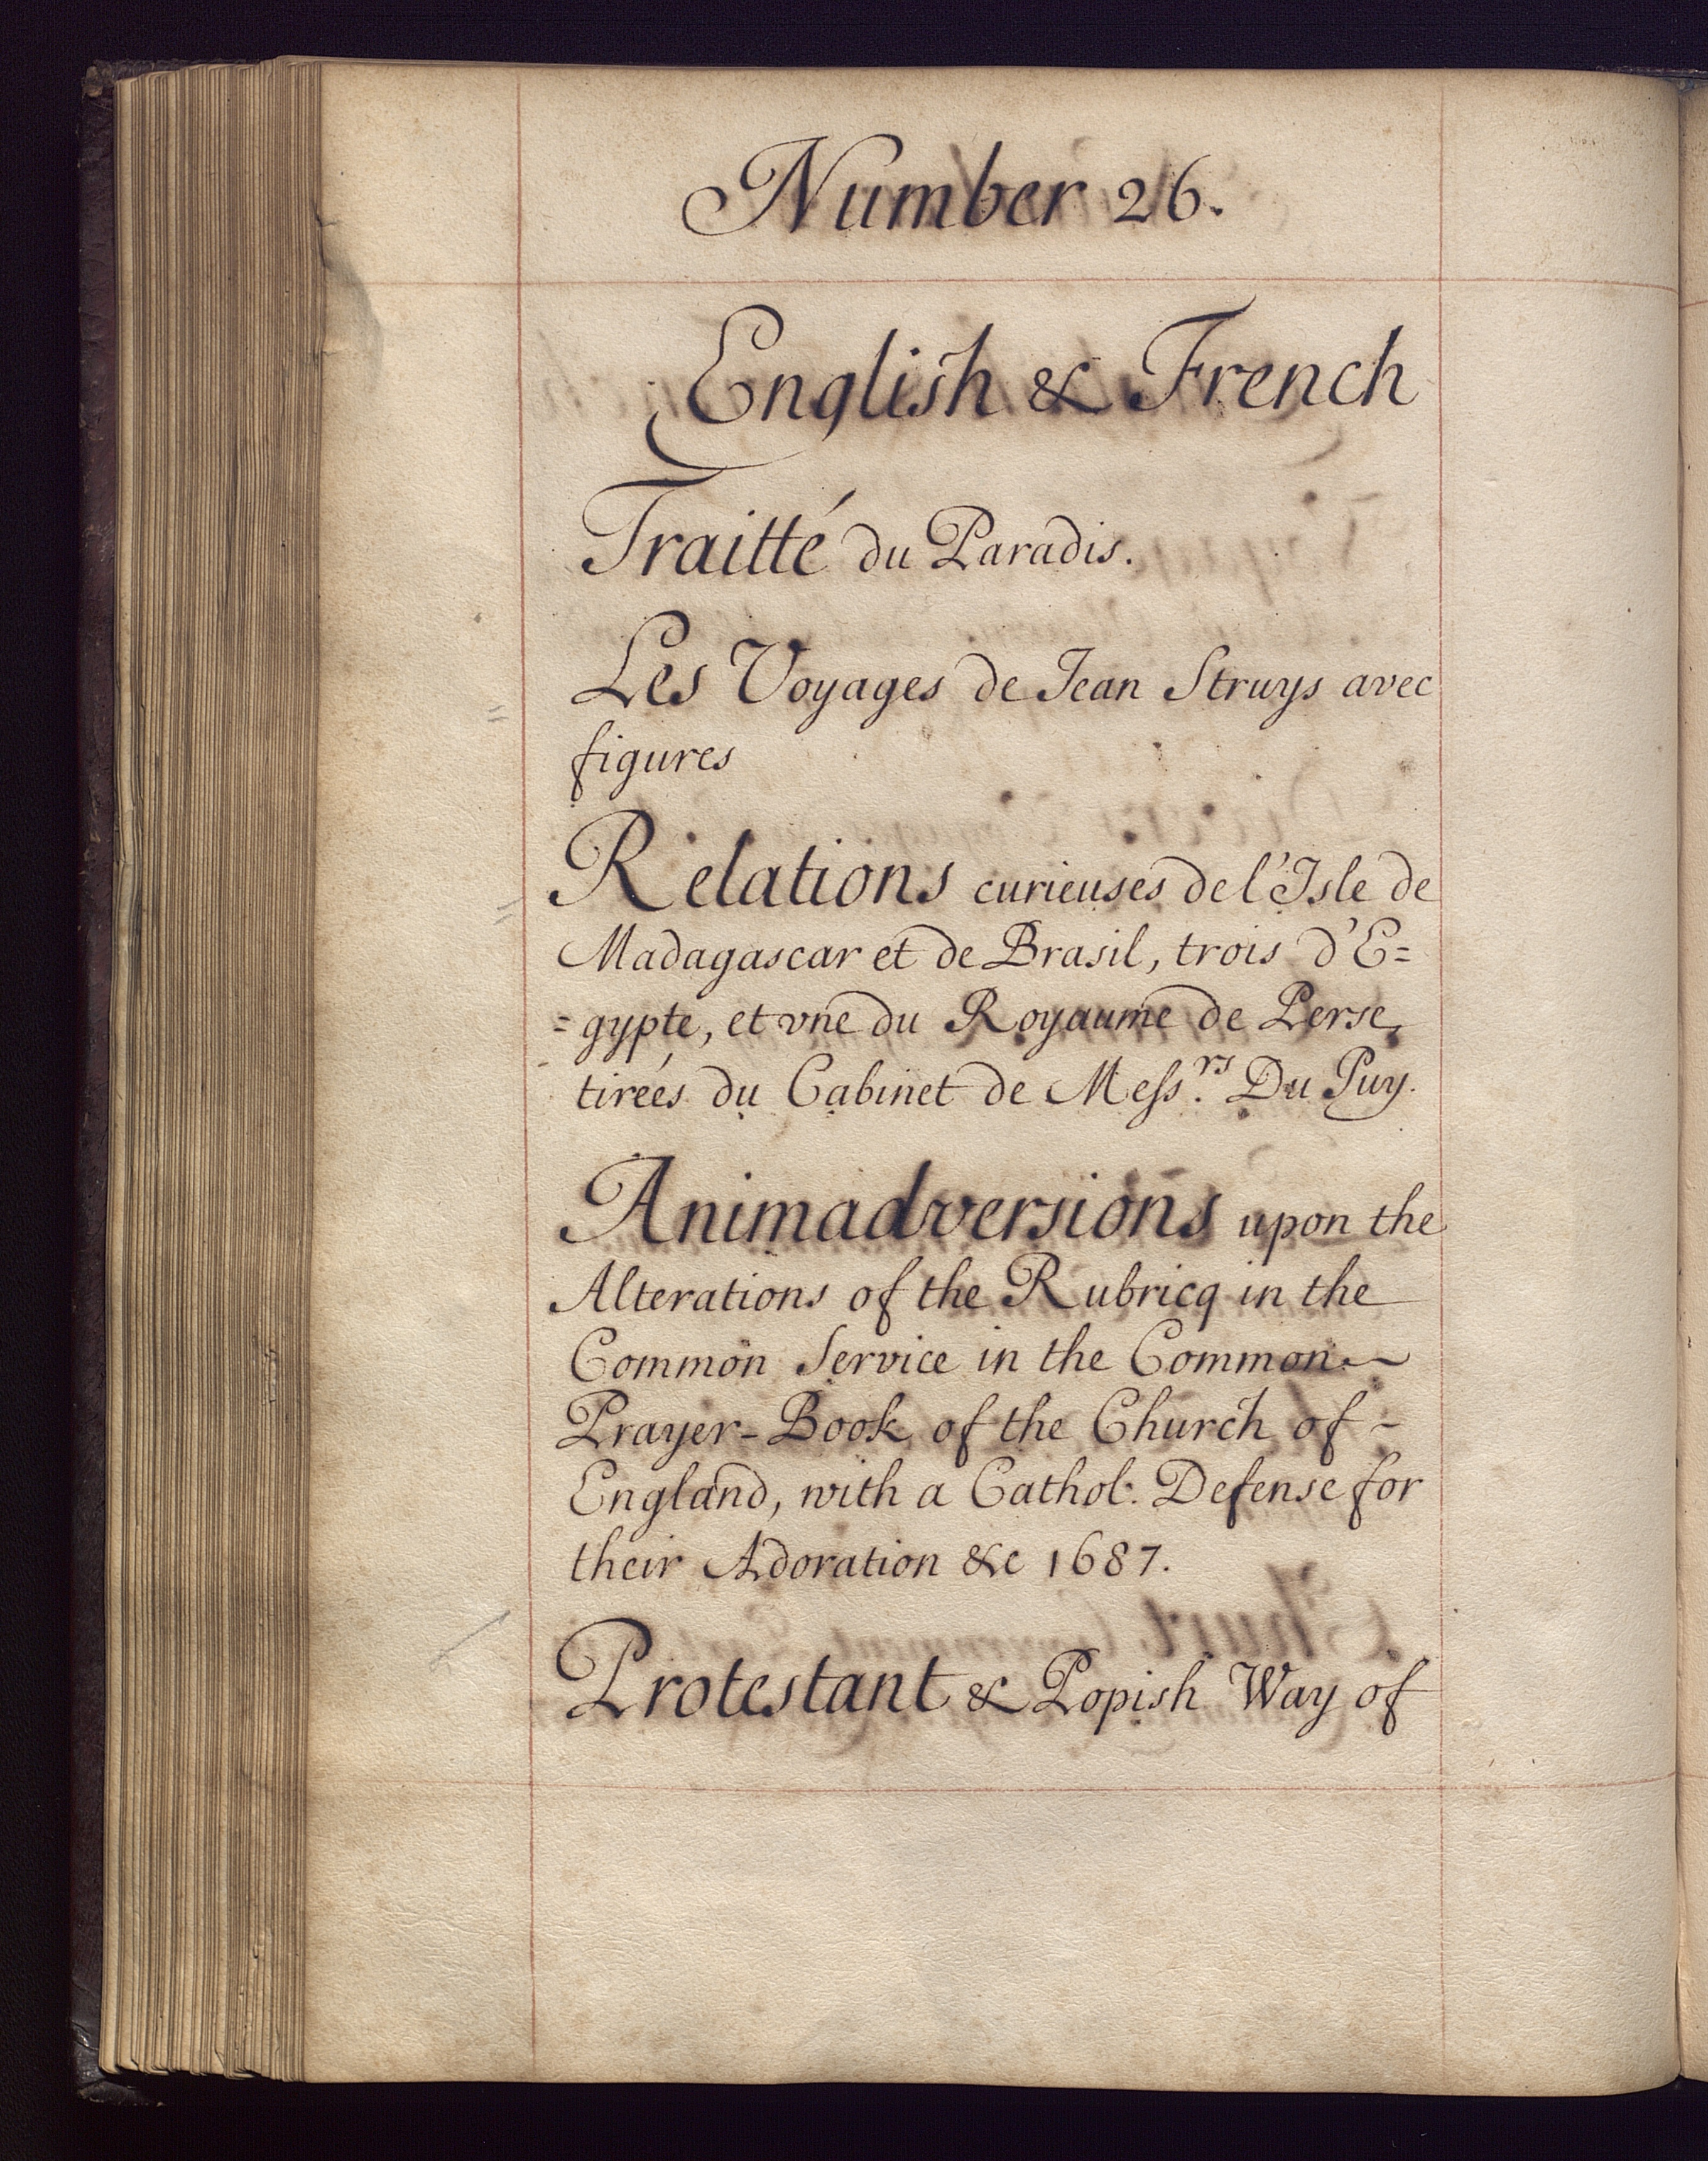 Number 26.
English & French
Traitté du Paradis.
Les Voyages de Jean Struys avec
figures
Relations curieuses de l'Isle de
Madagascar et de Brasil, trois d'E=
=gypte, et vne du Royaume de Perse,
tirées du Cabinet de Messrs. Du Puy.
Animadversions upon the
Alterations of the Rubricq in the
Common Service in the Common
Prayer-Book of the Church of -
England, with a Cathol. Defense for
their Adoration &c 1687.
Protestant & Popish Way of